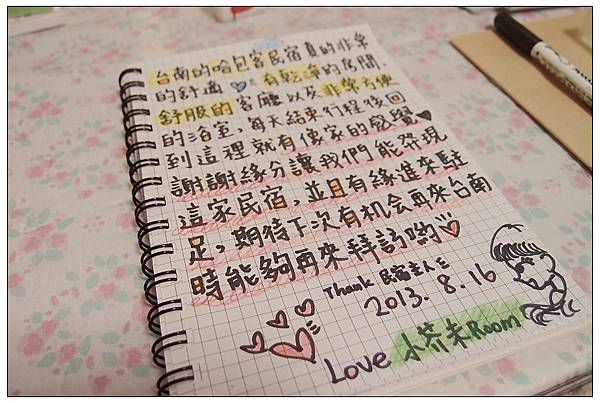 台南的哈包客民宿真的非常
的舒適 有乾淨的房間,
舒服的客廳以及非常方便
的浴室,每天結束行程後回
到這裡就有像家的感覺♥
謝謝緣分讓我們能發現
這家民宿,並且有緣進來駐
足,期待下次有机会再來台南
時能夠再來拜訪喲♡
Thank 民宿主人
2013. 8. 16
Love 小芥末Room